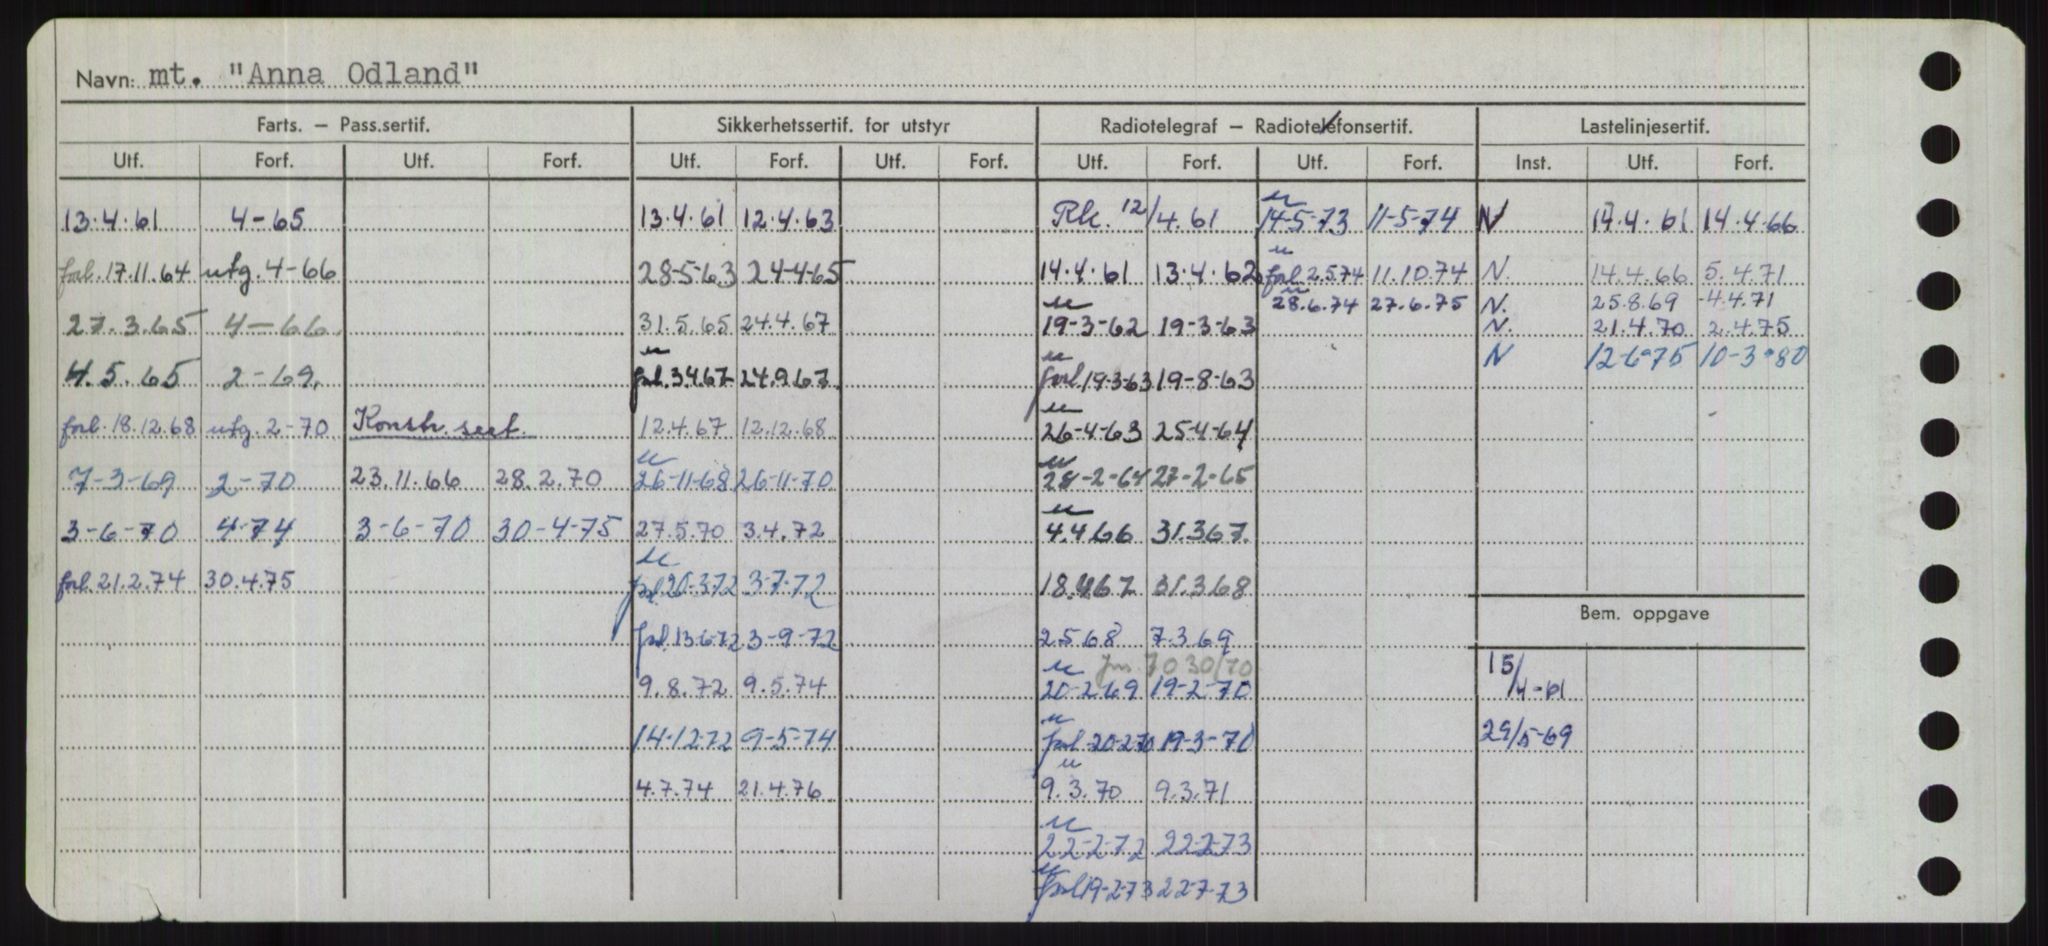 Navn: mt. "Anna Odland"
Farts. – Pass.sertif. Sikkerhetssertif. for utstyr Radiotelegraf – Radiotelefonsertif. Lastelinjesertif.
Utf. Forf. Utf. Forf. Utf. Forf. Utf. Forf. Utf. Forf. Utf. Forf. Inst. Utf. Forf.
13.4.61 4-65 13.4.61 12.4.63 Rk. 12/4.61 14-5-73 11-5-74 N 14.4.61 14.4.66
forl. 17.11.64 utg. 4-66 28-5-63 24-4-65 14.4.61 13.4.62 forl. 2.5.74 11.10.74 N. 14.4.66 5.4.71
28.6.74 27.6.75 N. 25.8.69 4.4.71
27.3.65 4-66 31.5.65 24.4.67 19-3-62 19-3-63 N. 21.4.70 2.4.75
N 12-6-75 10-3-80
4.5.65 2-69. forl. 3.4.67 24.9.67 forl. 19-3-63 19-8-63
forl. 18.12.68 utg. 2-70 Konstr. sert. 12.4.67 12.12.68 26-4-63 25-4-64
7-3-69 2-70 23.11.66 28.2.70 26-11-68 26-11-70 28-2-64 27-2-65
3-6-70 4-74 3-6-70 30-4-75 27.5.70 3.4.72 4.4.66 31.3.67.
forl. 21.2.74 30.4.75 forl. 20-3-72 3-7-72 18.4.67 31.3.68
Bem. oppgave
forl. 13-6-72 3-9-72 2.5.68 7.3.69
9.8.72 9.5.74 20-2-69 19-2-70 15/4-61
14.12.72 9-5-74 forl. 20-2-70 19-3-70 29/5-69
4.7.74 21.4.76 9.3.70 9.3.71
22-2-72 22-2-73
forl. 19-2-73 22-7-73